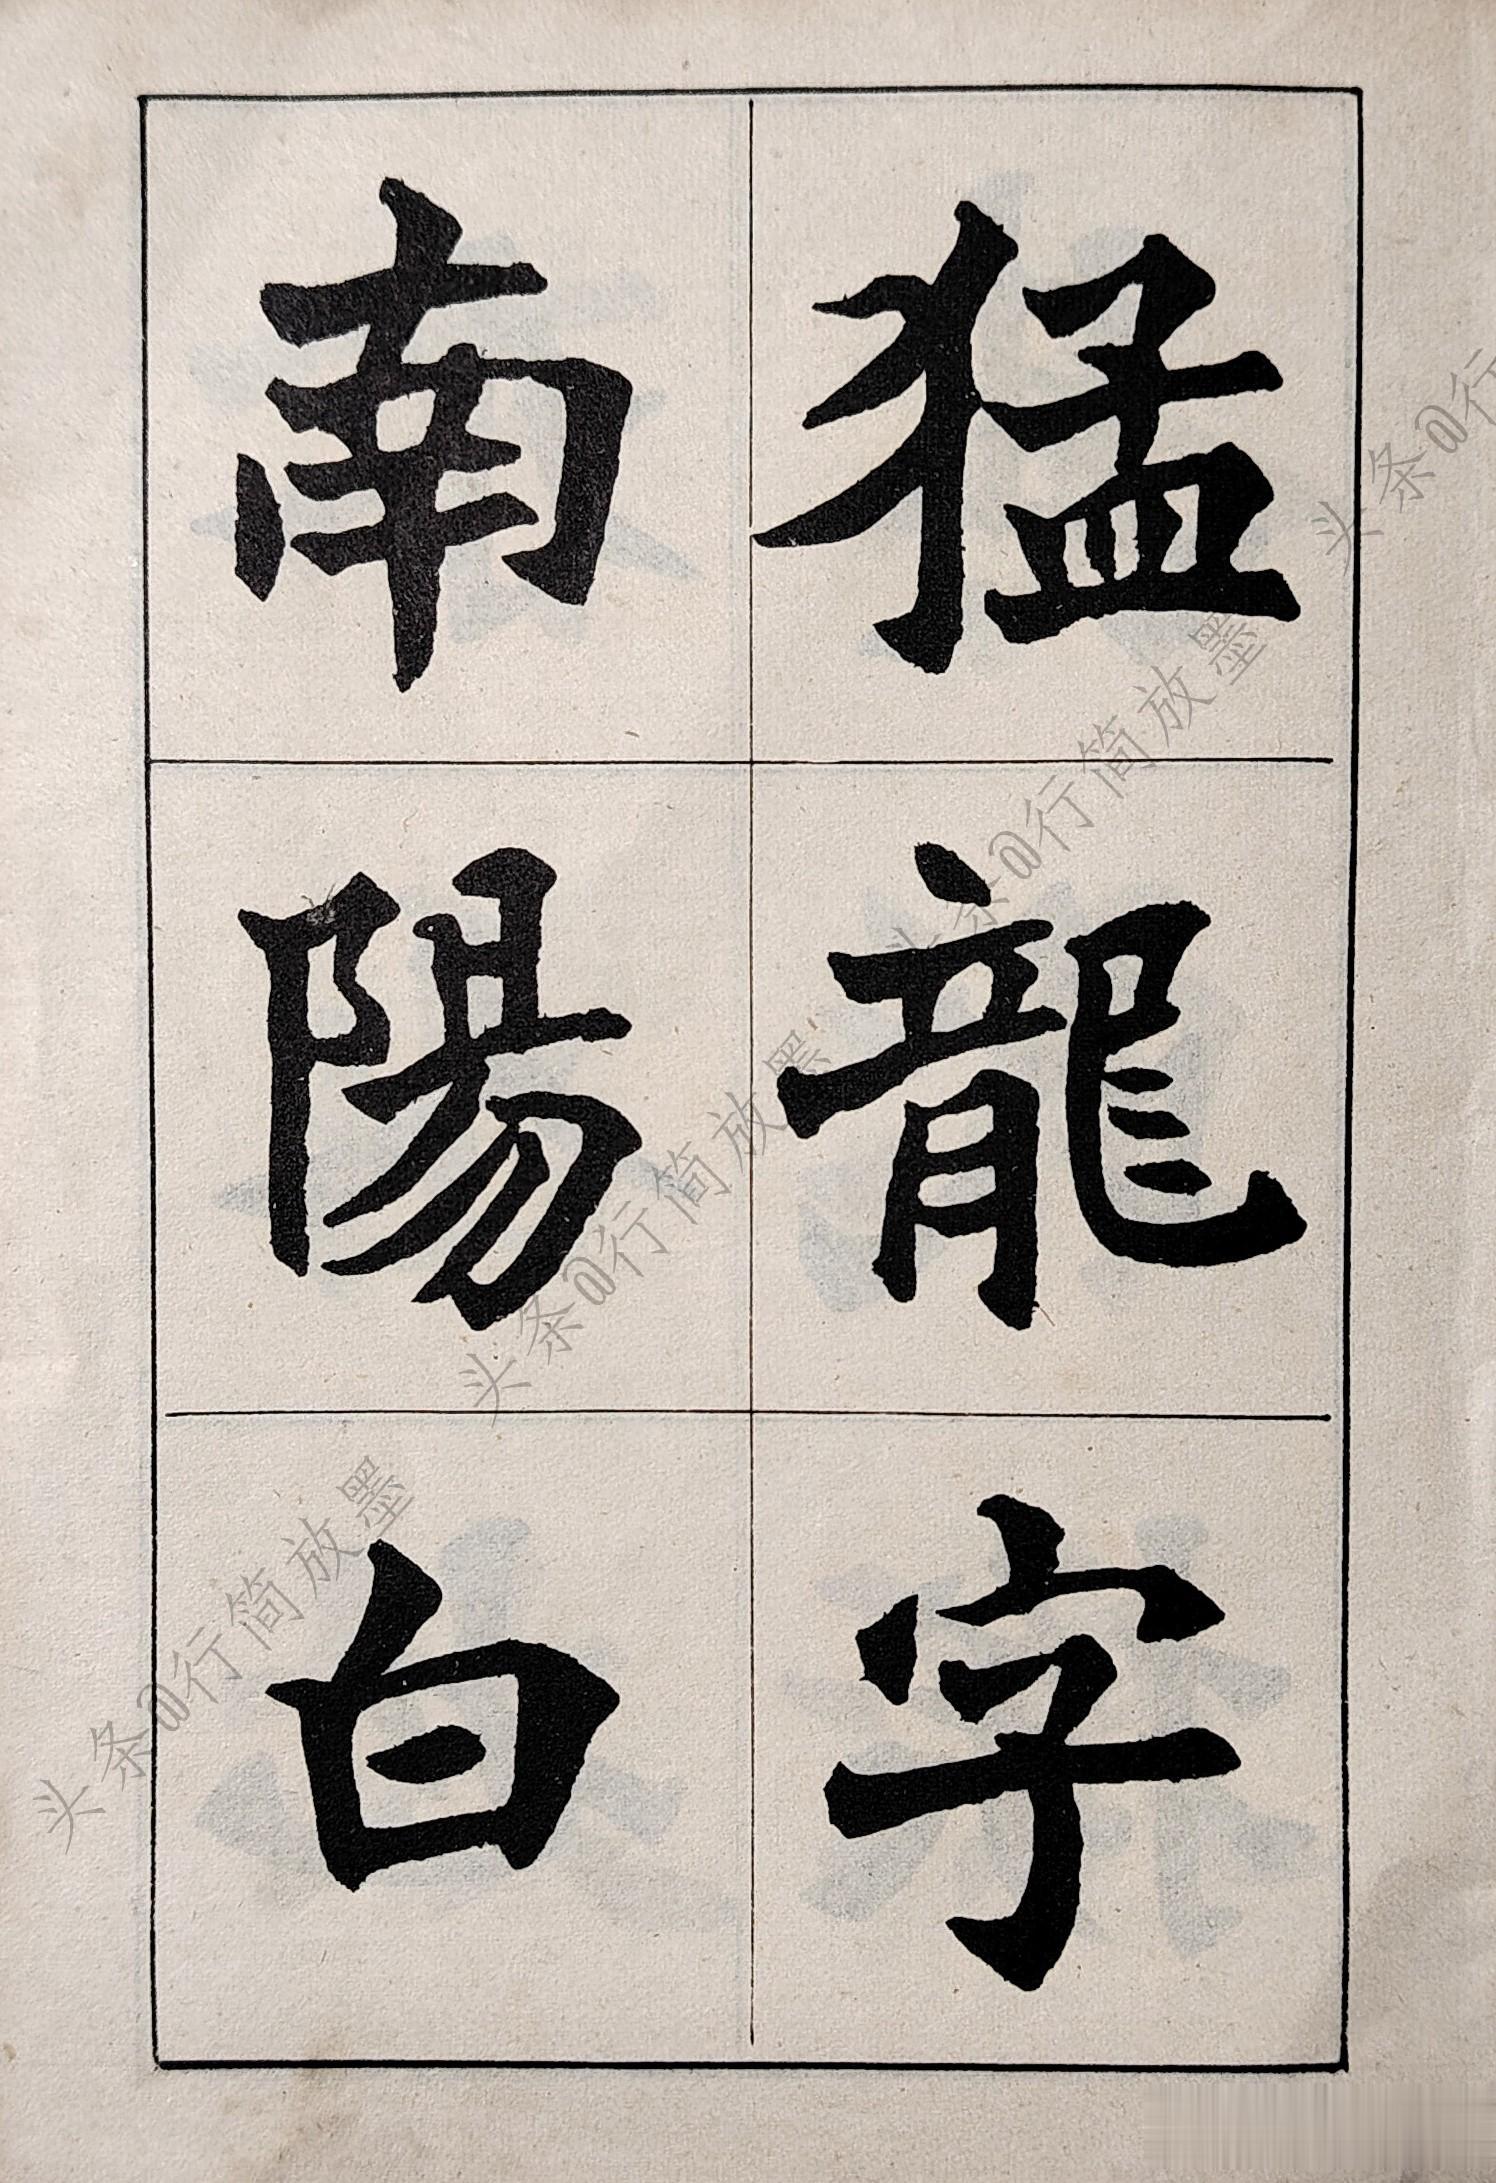 猛龍字
南陽白
头条@行简放墨
头条@行简放墨
头条@行简放墨
头条@行